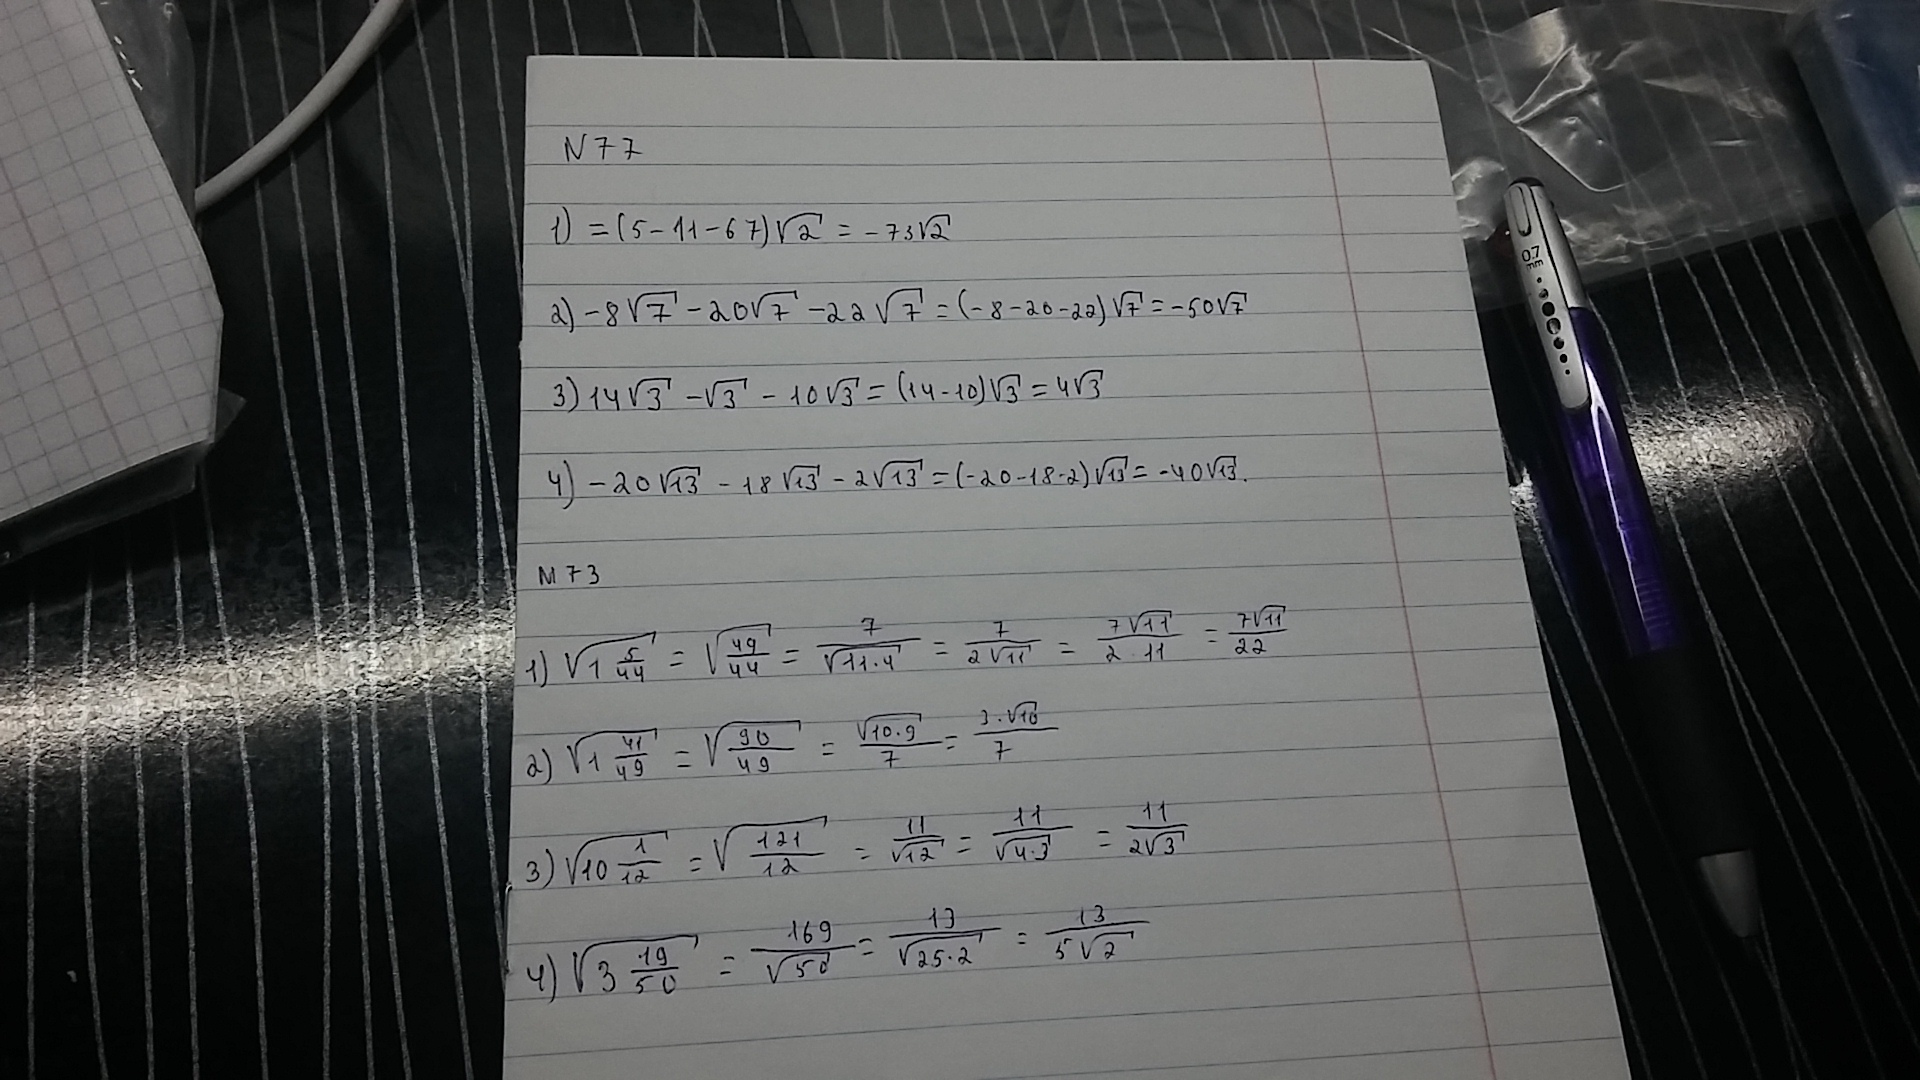 N 77
1) = (5-11-67)√2 = -73√2
2) -8√7 - 20√7 - 22√7 = (-8-20-22)√7 = -50√7
3) 14√3 - √3 - 10√3 = (14-10)√3 = 4√3
4) -20√13 - 18√13 - 2√13 = (-20-18-2)√13 = -40√13.
N 73
1) √(1 5/44) = √(49/44) = 7/√(11·4) = 7/(2√11) = 7√11/(2·11) = 7√11/22
2) √(1 41/49) = √(90/49) = √(10·9)/7 = 3·√10/7
3) √(10 1/12) = √(121/12) = 11/√12 = 11/√(4·3) = 11/(2√3)
4) √(3 19/50) = 169/√50 = 13/√(25·2) = 13/(5√2)
0.7
mm